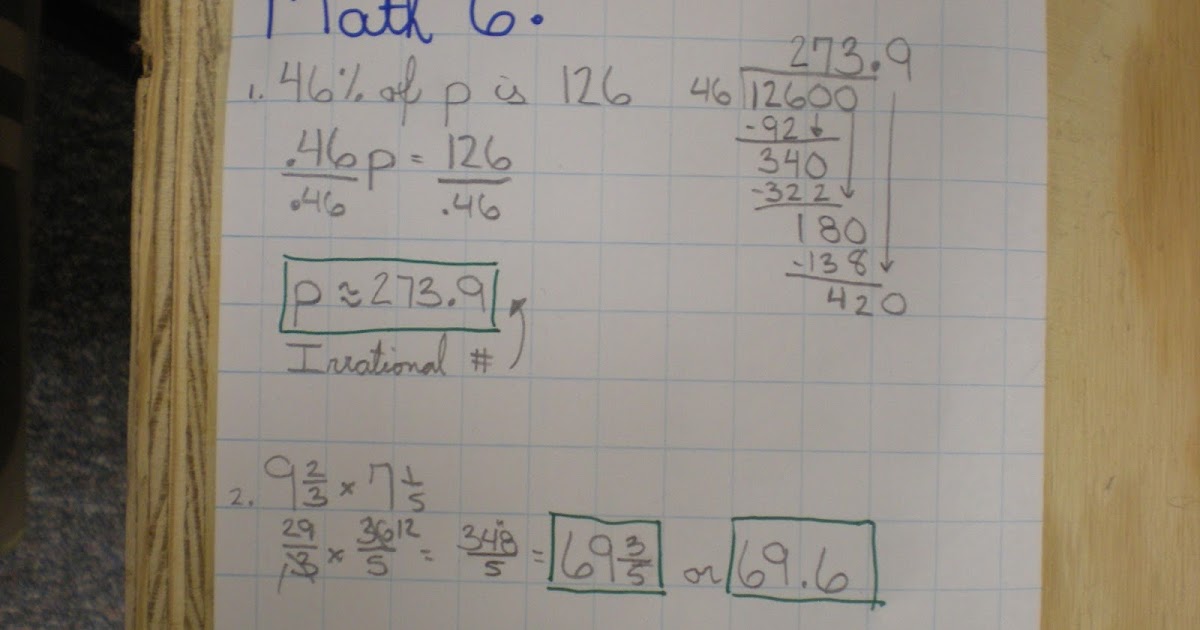 Math 6.
1. 46% of p is 126
.46p = 126
.46 .46
p ≈ 273.9
Irrational #
273.9
46 12600
-92
340
-322
180
-138
420
2. 9 2/3 × 7 1/5
29/3 × 36/5 12 = 348/5 = 69 3/5 or 69.6
1